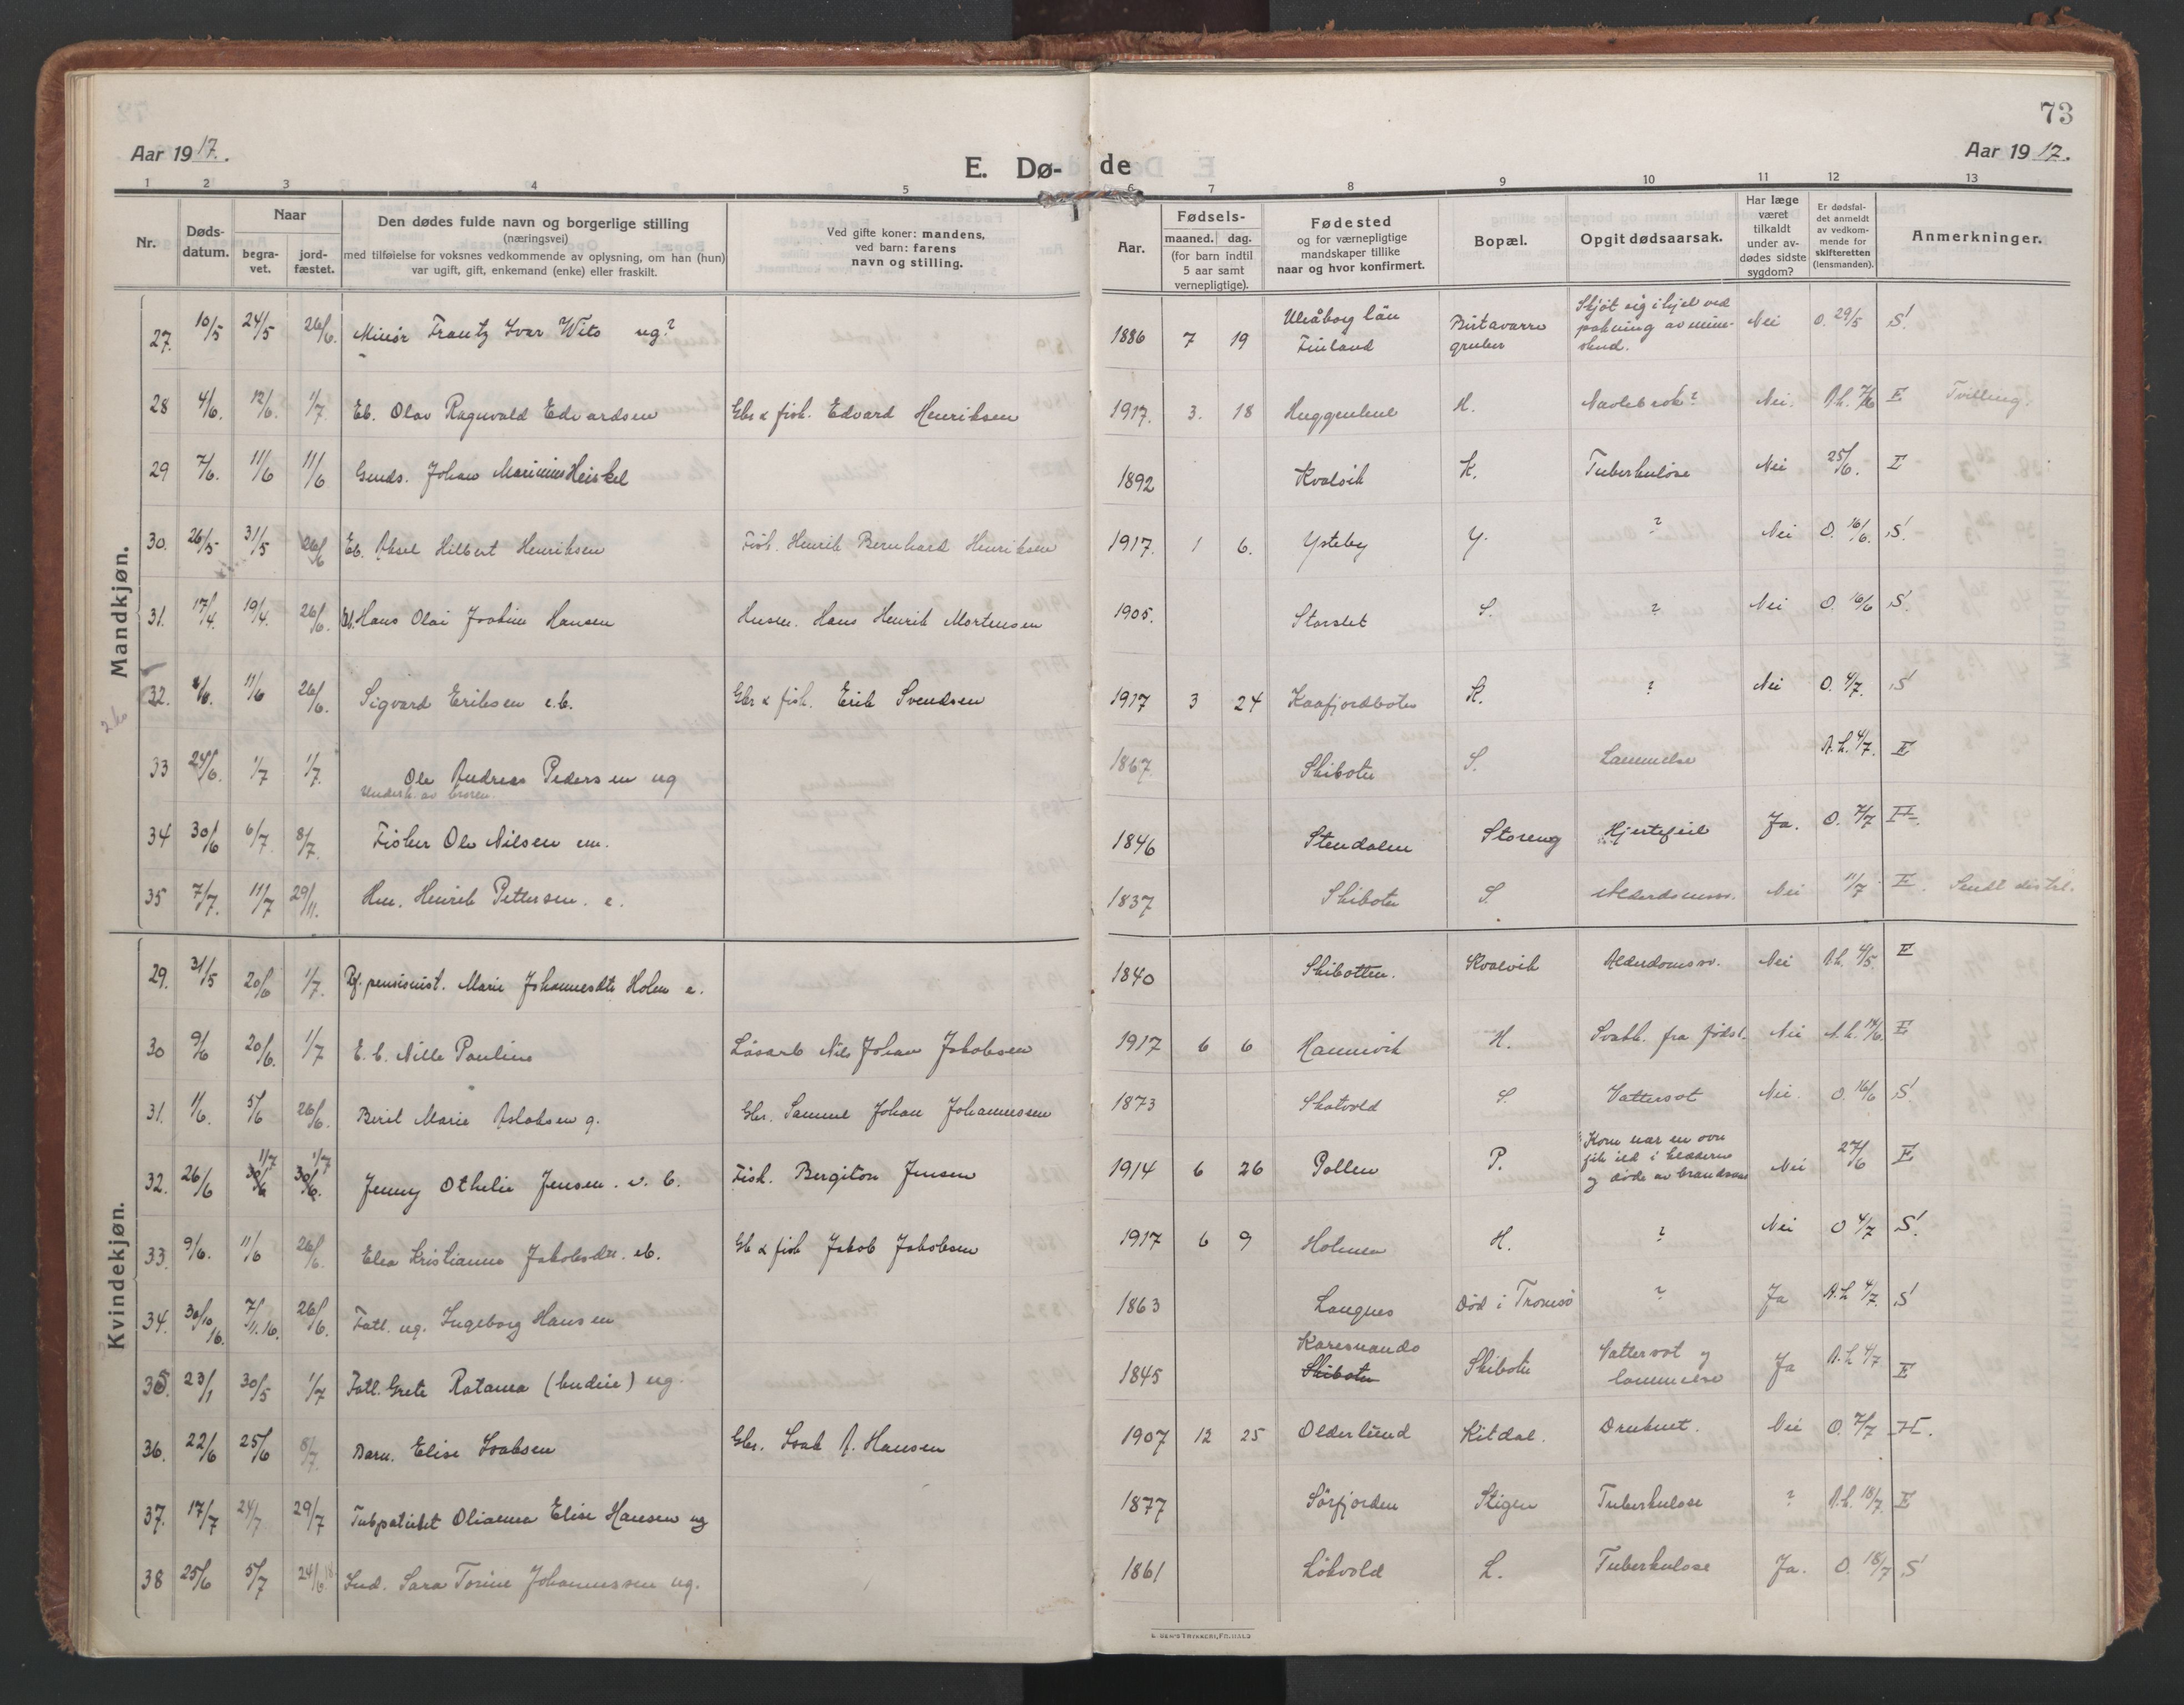 73
Aar 1917.
E. Dø- de
Aar 1917.
1 2 3 4 5 6 7 8 9 10 11 12 13
Nr.
Døds-
datum.
Naar
begra-
vet.
jord-
fæstet.
Den dødes fulde navn og borgerlige stilling
(næringsvei)
med tilføielse for voksnes vedkommende av oplysning, om han (hun)
var ugift, gift, enkemand (enke) eller fraskilt.
Ved gifte koner: mandens,
ved barn: farens
navn og stilling.
Aar.
Fødsels-
maaned. dag.
(for barn indtil
5 aar samt
vernepligtige).
Fødested
og for værnepligtige
mandskaper tillike
naar og hvor konfirmert.
Bopæl.
Opgit dødsaarsak.
Har læge
været
tilkaldt
under av-
dødes sidste
sygdom?
Er dødsfal-
det anmeldt
av vedkom-
mende for
skifteretten
(lensmanden).
Anmerkninger.
Mandkjøn.
27. 10/5 24/5 26/6. Minør Frantz Ivar Wits ug? 1886 7 19 Uleåborg län Finland Birtavarre gruber Skjøt sig ihjel ved pakning av mine- skud. Nei O. 29/5 S!
28 4/6. 12/6. 1/7. Eb. Olav Ragnvald Edvardsen Gbr & fisk. Edvard Henriksen 1917. 3. 18 Huggenhul H. Navlebrok? Nei. A.L. 7/6 E Tvilling.
29 7/6. 11/6 11/6 Gmds. Johan Marinius Heiskel 1892 Kvalvik K. Tuberkulose Nei 25/6. E
30. 26/5 31/5 26/6 Eb. Aksel Hilbert Henriksen Fisk. Henrik Bernhard Henriksen 1917. 1 6. Ysteby Y. ? Nei O. 16/6. S!
31. 17/4. 19/4. 26/6. Hans Olai Joakim Hansen Husm. Hans Henrik Mortensen 1905. Storslet S. ? Nei O. 16/6 S!
32. 11/6 26/6. Sigvard Eriksen e.b. Gbr & fisk. Erik Svendsen 1917 3 24 Kaafjordboten K. ? Nei O. 4/7. S!
33 24/6. 1/7 1/7. Ole Andreas Pedersen ug
Underh. av broren. 1867 Skiboten S. Lammelse A.L. 4/7. E
34 30/6 6/7. 8/7. Fisker Ole Nilsen em. 1846 Stendalen Storeng Hjertefeil Ja. O. 7/7
35 7/7. 11/7 29/11. Hm. Henrik Pettersen. e. 1837 Skiboten S. Alderdomssv. Nei 11/7 E. Sendt distrl.
Kvindekjøn.
29. 31/5 20/6 1/7. Pf. pensionist. Marie Johannesdtr Holm e. 1840 Skibotten. Kvalvik Alderdomssv. Nei A.L. 4/5. E
30 9/6 20/6. 1/7 E. b. Nille Pauline Løsarb Nils Johan Jakobsen 1917 6 6 Hamnvik H. Svakh. fra fødsl. Nei A.L. 14/6. E
31. 1/6. 5/6 26/6. Beril Marie Aslaksen g. Gbr. Samuel Johan Johannessen 1873 Skatvold S. Vattersot Nei. O. 16/6 S!
32. 26/6 1/7 30/6 1/7 30/6. Jenny Othelie Jensen. e. b. Fisk. Bergiton Jensen 1914 6 26 Pollen P. Kom nær en ovn fik ild i klæderne og døde av brandsaar Nei 27/6 E
33. 9/6. 11/6 26/6. Elea Kristianna Jakobsdtr. eb. Gb & fisk Jakob Jakobsen 1917 6 9 Holmen H. ? Nei O 4/7 S!
34. 30/10 16. 7/11.16. 26/6. Fatl. ug. Ingeborg Hansen 1863 Langnes Død i Tromsø ? Ja A.L 4/7. S!
35. 23/1 30/5 1/7 Fatl. Grete Ratama (budeie) ug. 1845 Karesuando Skiboten Skiboten Vattersot og lammelse Ja A.L 4/7 E
36. 22/6 25/6 8/7. Barn. Elise Isaksen Gbr. Isak A. Hansen 1907 12 25 Olderlund Kitdal. Druknet. Nei O. 7/7 H.
37. 17/7 24/7 29/7 Tubpatient Olianna Elise Hansen ug 1877 Sörfjorden Stigen Tuberkulose ? A.L. 18/7. E
38 25/6 5/7 24/6 18. Ind. Sara Torine Johannessen ug. 1861 Lökvold L. Tuberkulose Ja. O. 18/7 S!